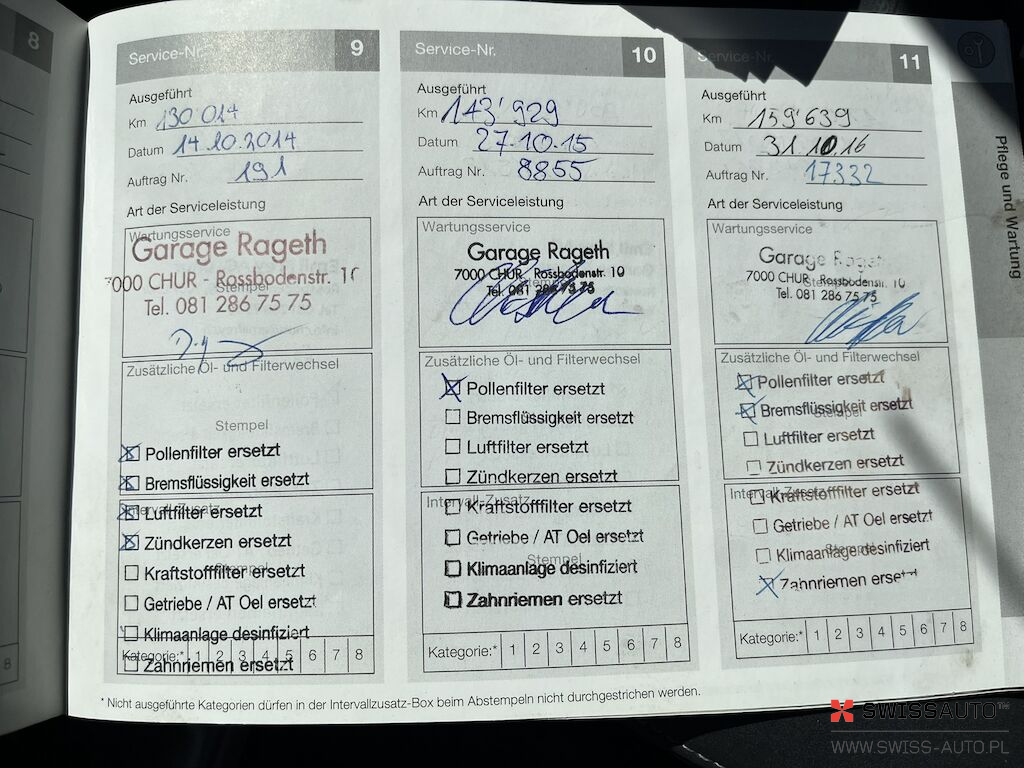 8
Service-Nr. 9
Ausgeführt
Km 130'014
Datum 14.10.2014
Auftrag Nr. 191
Art der Serviceleistung
Wartungsservice
Garage Rageth
7000 CHUR - Rossbodenstr. 10
Stempel
Tel. 081 286 75 75
Zusätzliche Öl- und Filterwechsel
Stempel
Pollenfilter ersetzt
Bremsflüssigkeit ersetzt
Intervall-Zusatz
Luftfilter ersetzt
Zündkerzen ersetzt
Stempel
Kraftstofffilter ersetzt
Getriebe / AT Oel ersetzt
Klimaanlage desinfiziert
Kategorie:* 1 2 3 4 5 6 7 8
Zahnriemen ersetzt
Service-Nr. 10
Ausgeführt
Km 143'929
Datum 27.10.15
Auftrag Nr. 8855
Art der Serviceleistung
Wartungsservice
Garage Rageth
7000 CHUR - Rossbodenstr. 10
Stempel
Tel. 081 286 75 75
Zusätzliche Öl- und Filterwechsel
Pollenfilter ersetzt
Bremsflüssigkeit ersetzt
Luftfilter ersetzt
Zündkerzen ersetzt
Intervall-Zusatz
Kraftstofffilter ersetzt
Getriebe / AT Oel ersetzt
Stempel
Klimaanlage desinfiziert
Zahnriemen ersetzt
Kategorie:* 1 2 3 4 5 6 7 8
Service-Nr. 11
Ausgeführt
Km 159'639
Datum 31 10 16
Auftrag Nr. 17332
Art der Serviceleistung
Wartungsservice
Garage Rageth
7000 CHUR - Rossbodenstr. 10
Stempel
Tel. 081 286 75 75
Zusätzliche Öl- und Filterwechsel
Pollenfilter ersetzt
Bremsflüssigkeit ersetzt
Stempel
Luftfilter ersetzt
Zündkerzen ersetzt
Intervall-Zusatz
Kraftstofffilter ersetzt
Getriebe / AT Oel ersetzt
Stempel
Klimaanlage desinfiziert
Zahnriemen ersetzt
Kategorie:* 1 2 3 4 5 6 7 8
Pflege und Wartung
8
* Nicht ausgeführte Kategorien dürfen in der Intervallzusatz-Box beim Abstempeln nicht durchgestrichen werden.
SWISSAUTO™
WWW.SWISS-AUTO.PL